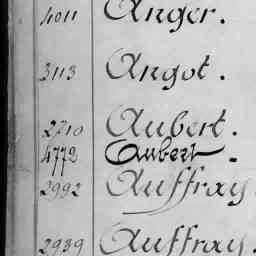 4011 Anger.
3113 Angot.
2210 Aubert.
4772 Aubert.
2992 Auffray
2939 Auffray.